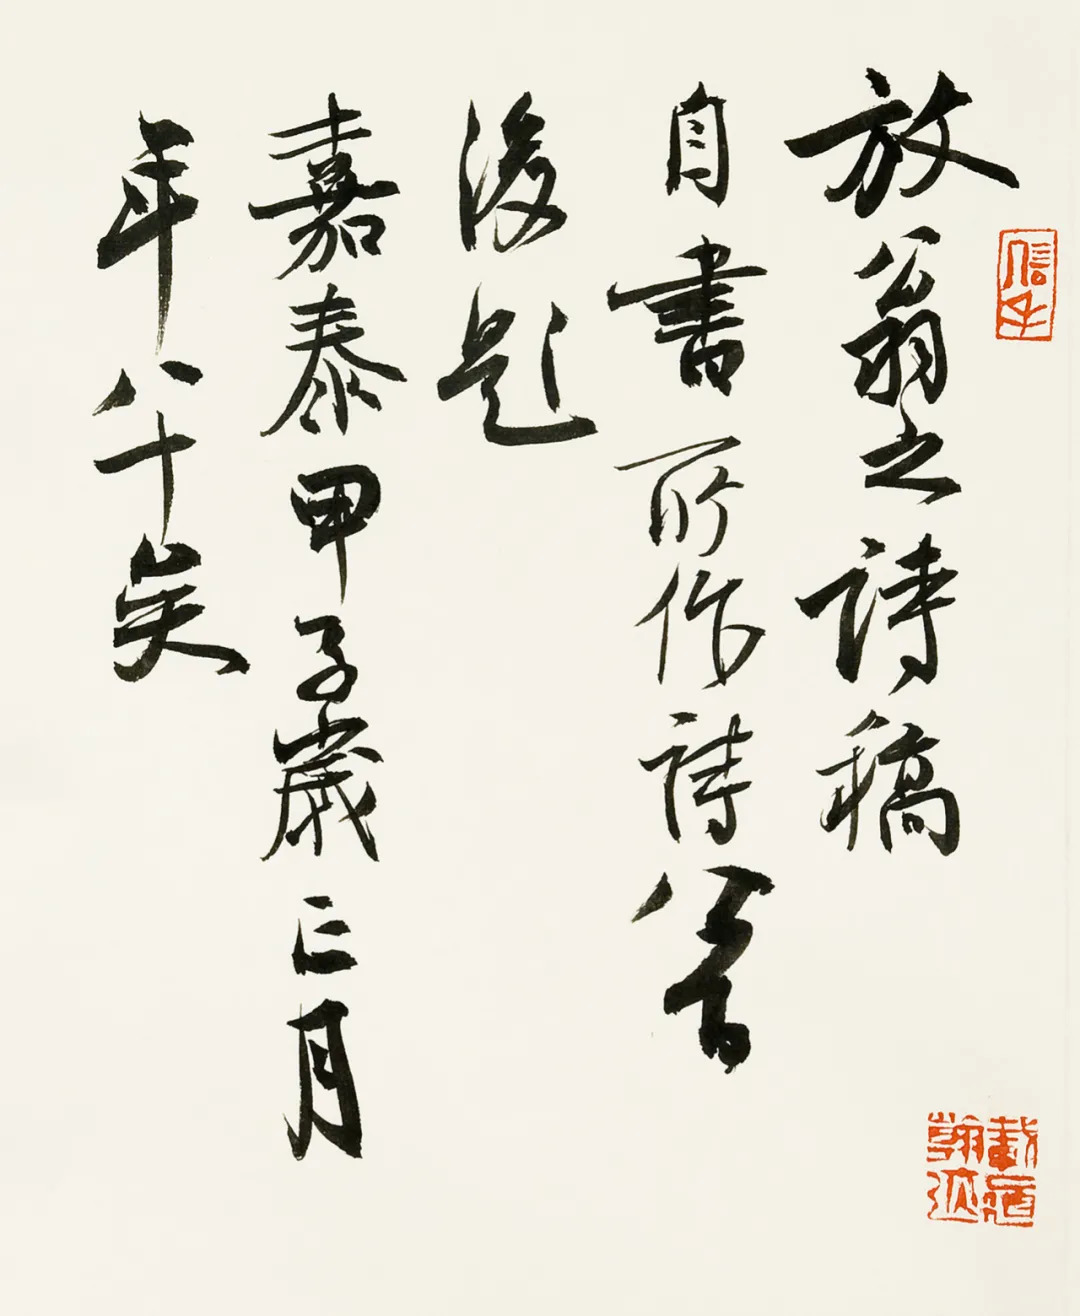 放翁之詩稿
自書所作詩
後題
嘉泰甲子歲正月
年八十矣